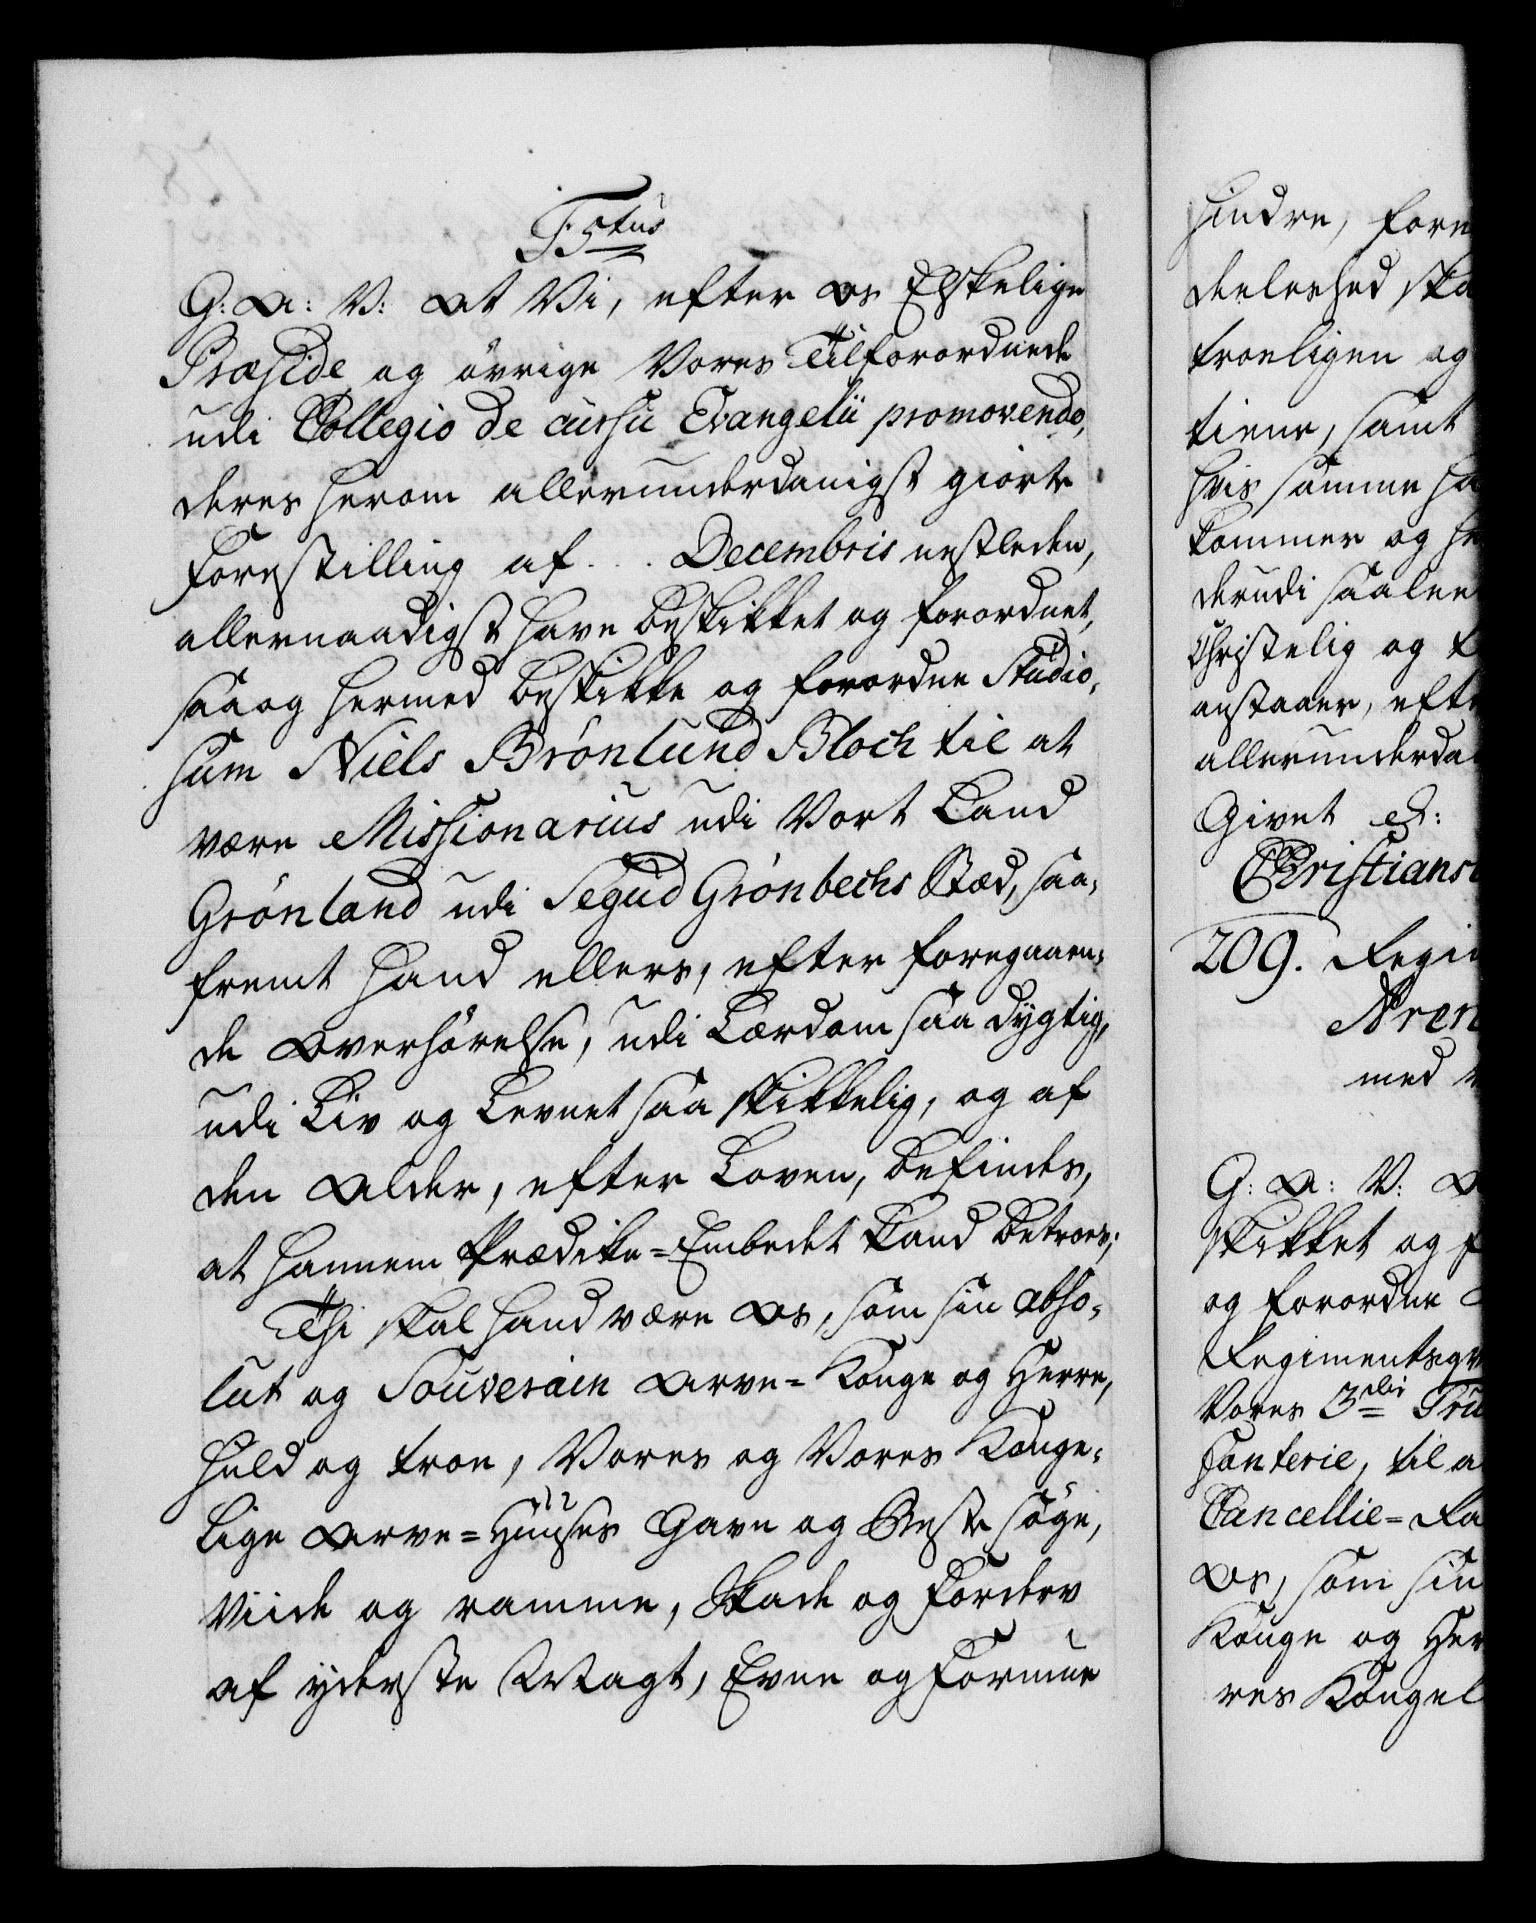 F: 5tus
G: A: V: At Vi, efter Os Elskelige
Præside og övrige Vores Tilforordnede
udi Collegio de cursu Evangelii promovendo,
deres herom allerunderdanigst giorte
Forestilling af . . . Decembris nestleden,
allernaadigst have beskikket og forordnet,
saa og hermed beskikke og forordne Studio-
sum Niels Brönlund Bloch til at
være Missionarius udi Vort Land
Grönland udi Segud Grönbechs Stæd, saa-
fremt hand ellers, efter foregaaen-
de Overhörelse, udi Lærdom saa dygtig,
udi Liv og Levnet saa skikkelig, og af
den Alder, efter Loven, befindes,
at hannem Prædike-Embedet kand betroes;
Thi skal hand være Os, som sin abso-
lut og Souverain Arve-Konge og Herre,
huld og troe, Vores og Vores Konge-
lige Arve-Huuses Gavn og Beste söge,
Viide og ramme, Skade og Forderv
af yderste Magt, Evne og Formue
hindre, fore
deeleshed ska
troeligen og
tiene, samt
hvis samme ha
kommer og he
derudi saalee
Christelig og t
anstaaer, efte
allerunderda
Givet etc:
Christiansb
209. Regi
Aren
med
G: A: V: A
skikket og f
og forordne
Regimentsqv
Vores 3die Tru
fanterie, til a
Cancellie-Ra
Os, som sin
Konge og Her
res Kongel